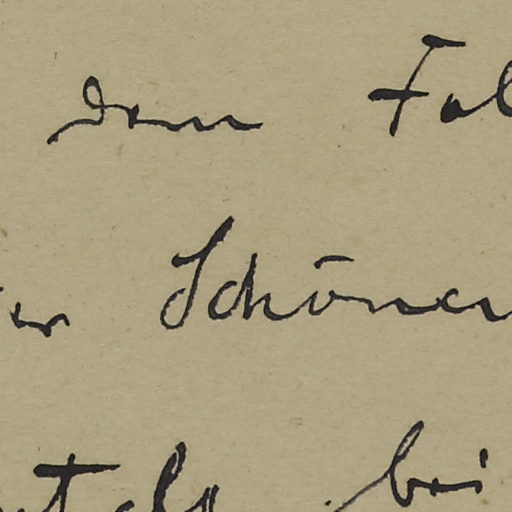 dem Fal
er Schönen
bei